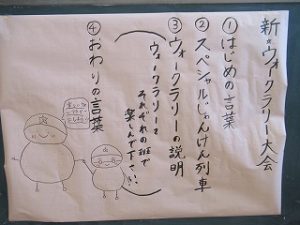 新☆ウォークラリー大会
①はじめの言葉
②スペシャルじゃんけん列車
③ウォークラリーの説明
(ウォークラリーを
それぞれの班で
楽しんで下さい!)
④おわりの言葉